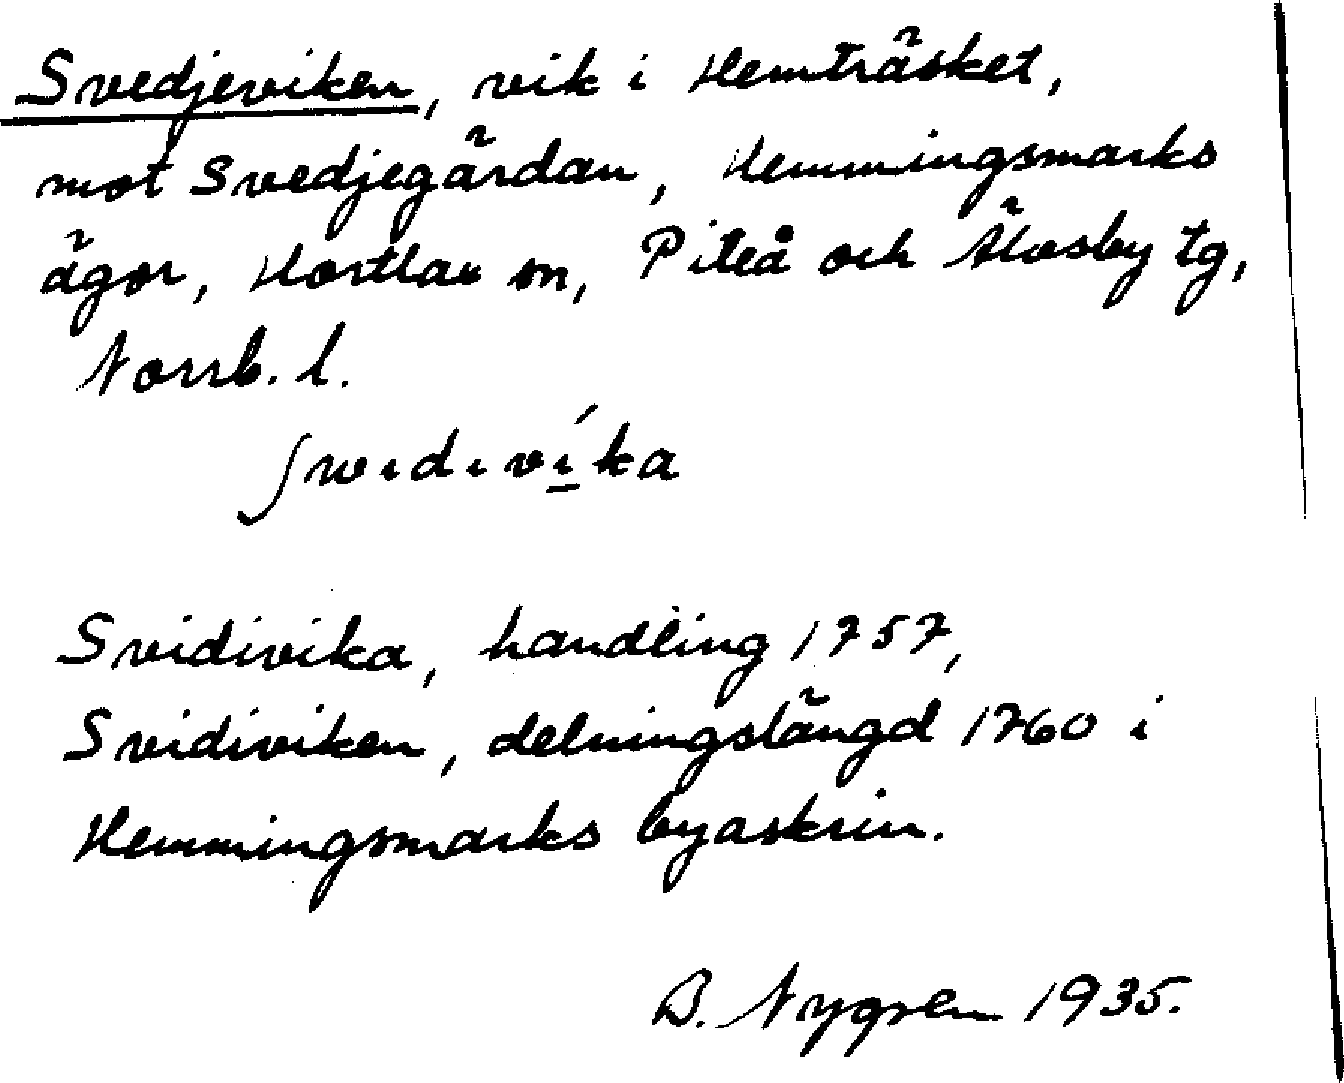 Svedjeviken, vik i Hemträsket,
mot Svedjegärdan, Hemmingsmarks
ägor, Hortlax sn, Piteå och Älvsby tg,
Norrb. l.
ʃwıdıví̱ka
Svidivika, handling 1757,
Svidiviken, delningslängd 1760 i
Hemmingsmarks byaskrin.
B. Nygren 1935.